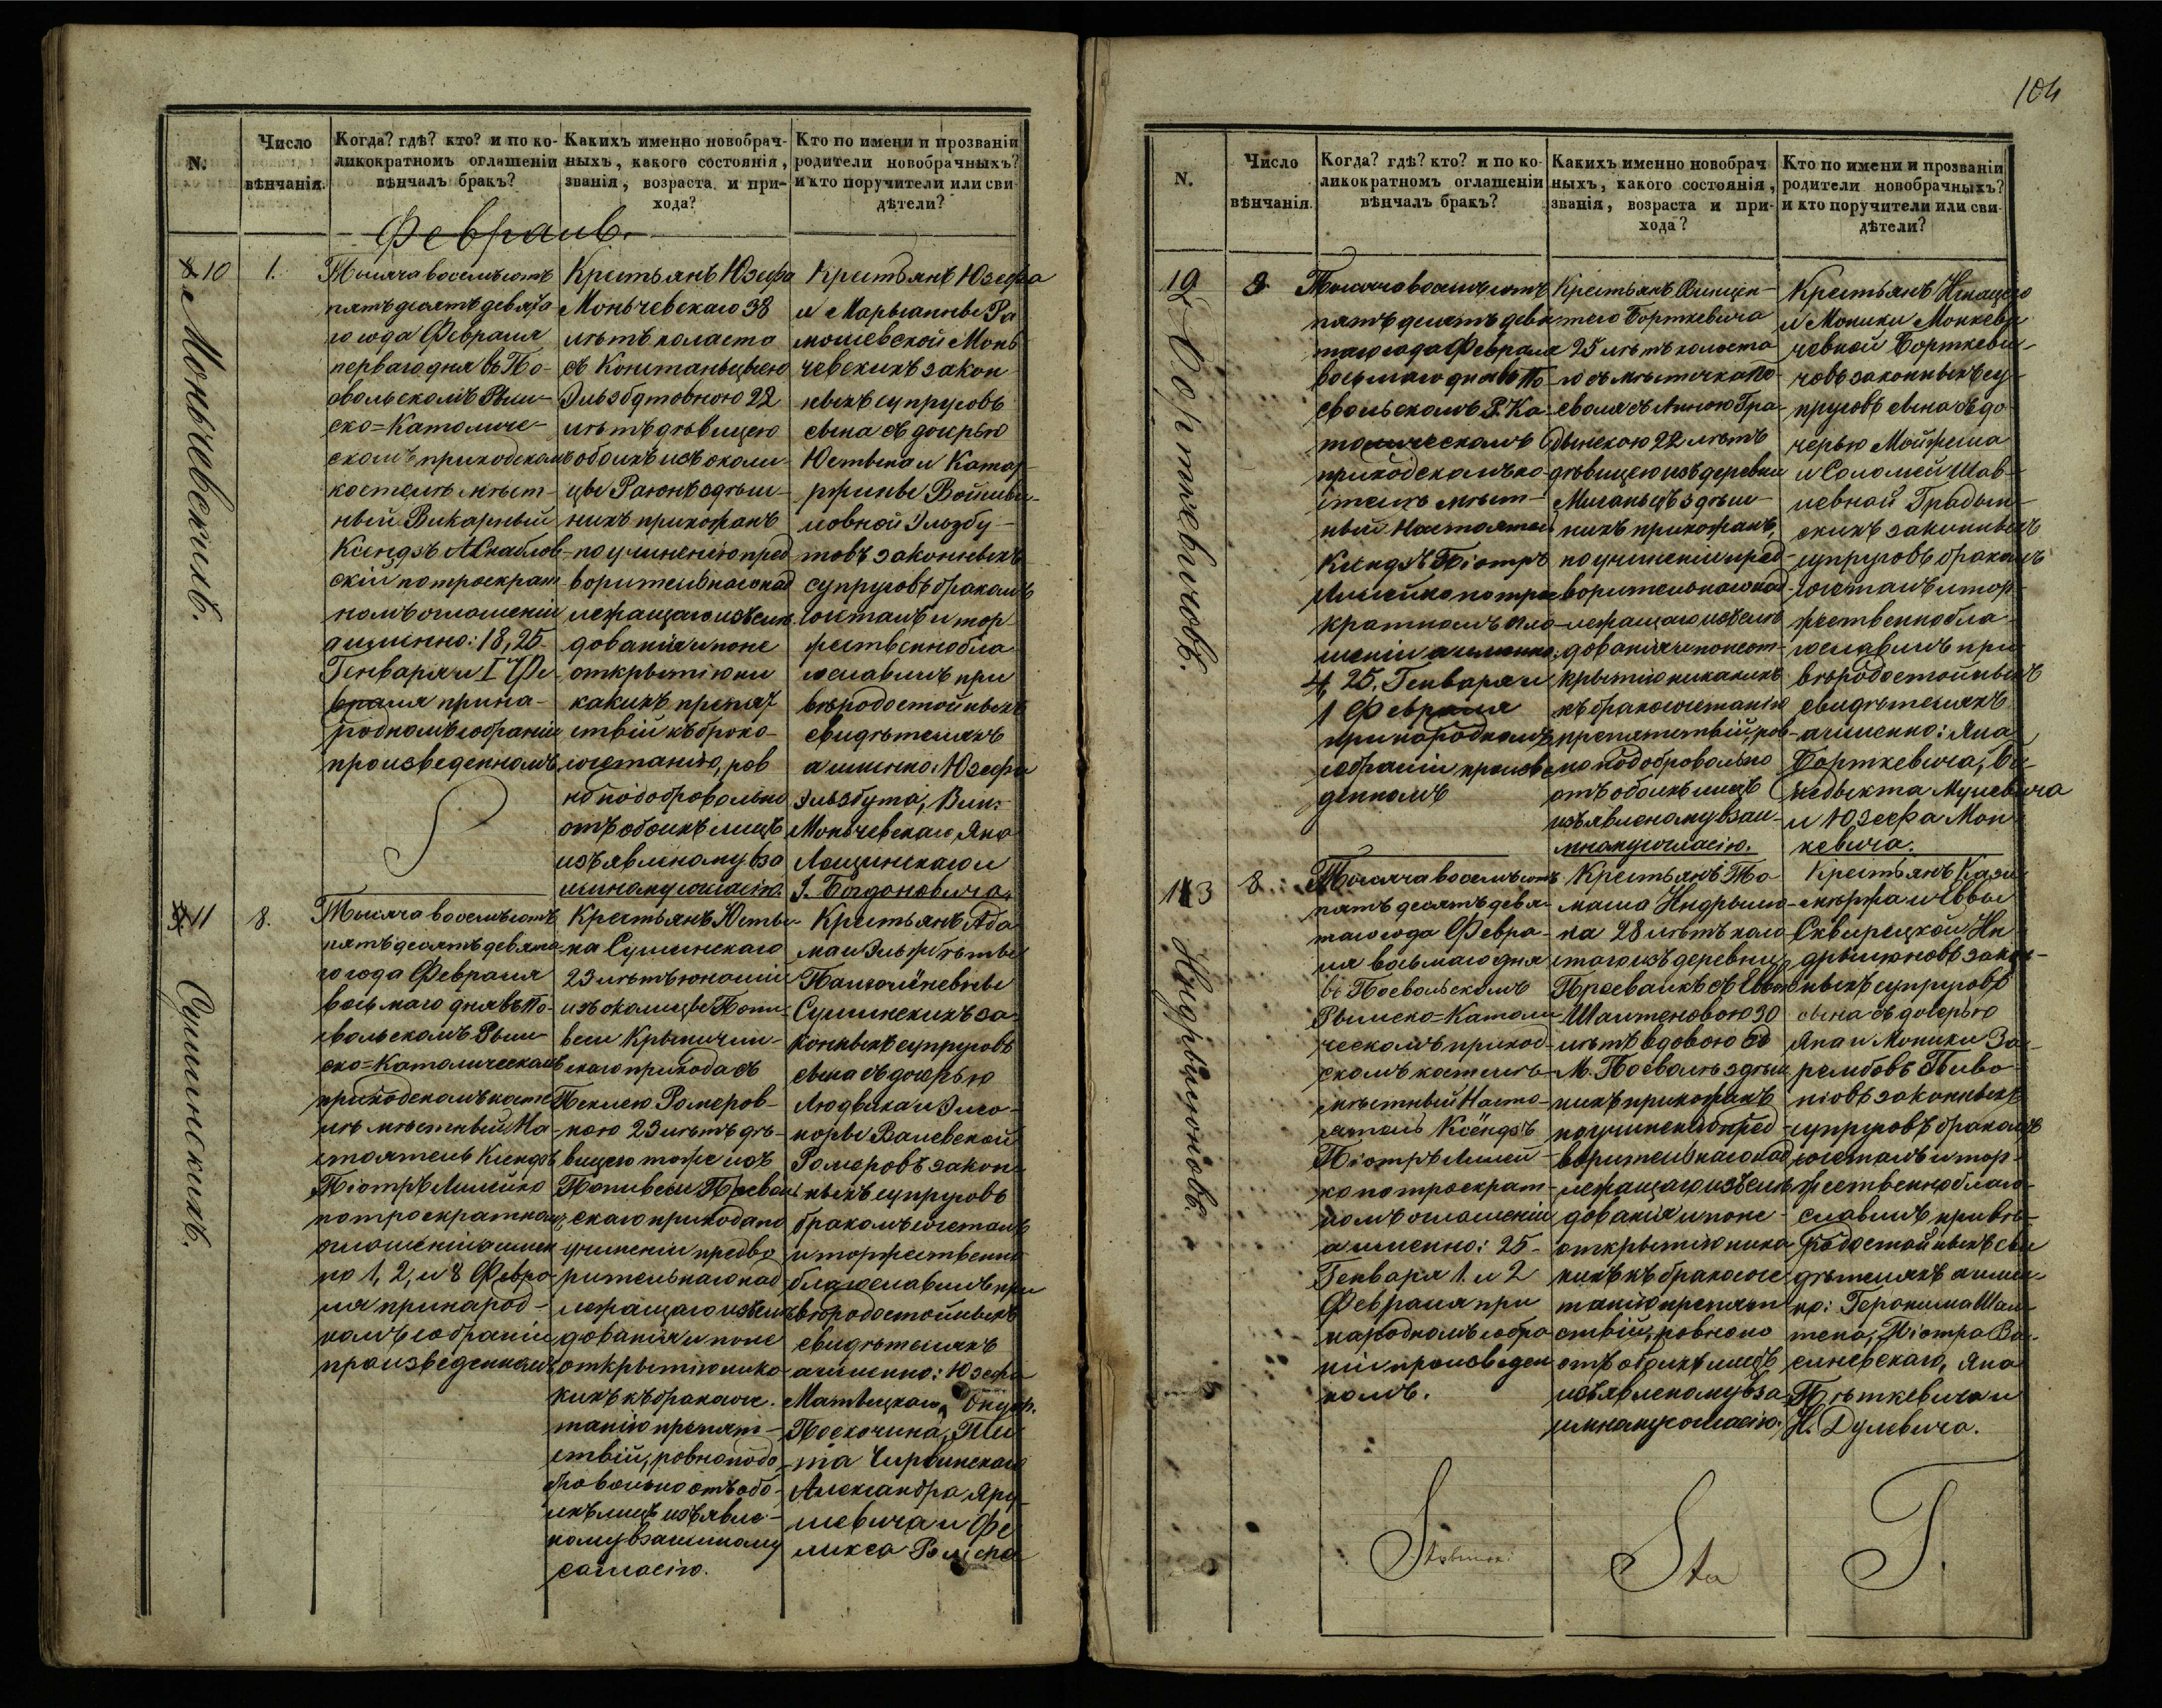 104
N.
Число
вѣнчанія.
Когда? гдѣ? кто? и по ко-
ликократномъ оглашеніи
вѣнчалъ бракъ?
Какихъ именно новобрач-
ныхъ, какого состоянія,
званія, возраста и при-
хода?
Кто по имени и прозваніи
родители новобрачныхъ?
и кто поручители или сви-
дѣтели?
Февраль.
10
Моньчевскихъ.
1.
Тысяча восемьсотъ
пятьдесятъ девята
го года Февраля
перваго дня въ По-
овольскомъ Рым-
ско=Католиче-
скомъ приходскомъ
костелѣ мѣст-
ный Викарный
Ксендзъ
скій по троекрат
номъ оглашеніи
а именно: 18, 25
Генваря и 1 Фе
враля при на-
родномъ собраніи
произведенномъ.
Крестьянъ Юзефа
Моньчевскаго 38
лѣтъ холаста
съ Констаньцыею
Эльзбутовною 22
лѣтъ дѣвицею
обоихъ изъ околи-
цы Раюнъ здѣш-
нихъ прихожанъ
по учиненію пред
варительнаго над
лежащаго изслѣ
дованія и поне
открытію ни
какихъ препят
ствій къ брако-
сочетанію, ров
но по добровольно
отъ обоихъ лицъ
изъявленому вза
имному согласію.
Крестьянъ Юзефа
и Марыанны Ра
мошевской Монь
чевскихъ закон
ныхъ супруговъ
сына съ дочерью
Юстына и Катар-
жины Войшви-
ловной Эльзбу-
товъ законныхъ
супруговъ бракомъ
сочеталъ и тор
жественно бла
гославилъ при
вѣродостойныхъ
свидѣтеляхъ
а именно: Юзефа
Эльзбута, Вин.
Моньчевскаго, Яна
Лащинскаго и
І. Богдановича.
11
Сулинскихъ.
8.
Тысяча восемьсотъ
пятьдесятъ девята
го года Февраля
восьмаго дня въ По-
свольскомъ Рым
ско=Католическомъ
приходскомъ косте
лѣ мѣстный На-
стоятель Ксендзъ
Піотръ Лилейко
по троекратномъ
оглашеніи а имен
но 1, 2, и 8 Февра-
ля при народ-
номъ собраніи
произведенномъ
Крестьянъ Юсты-
на Сулинскаго
23 лѣтъ юнаши
изъ околицы Попи-
веси Крыничин-
скаго прихода съ
Теклею Ромеров-
ною 23 лѣтъ дѣ-
вицею тоже изъ
Попивеси Посволь
скаго прихода по
учиненіи предва
рительнаго над
лежащаго изслѣ
дованія и поне
открытію ника
кихъ къ бракосоче.
танію препят-
ствій, ровно по до-
бровольно отъ обо-
ихъ лицъ изъявле-
ному взаимному
согласію.
Крестьянъ Ада
ма и Эльжбѣты
Сулинскихъ за-
конныхъ супруговъ
сына съ дочерью
Людвика и Элео-
норы Валевской
Ромеровъ закон-
ныхъ супруговъ
бракомъ сочеталъ
и торжественно
благославилъ при
вѣродостойныхъ
свидѣтеляхъ
а именно: Юзефа
Александра Яру-
шевича и Фе
ликса Ромера
N.
Число
вѣнчанія.
Когда? гдѣ? кто? и по ко-
ликократномъ оглашеніи
вѣнчалъ бракъ?
Какихъ именно новобрач
ныхъ, какого состоянія,
званія, возраста и при-
хода?
Кто по имени и прозваніи
родители новобрачныхъ?
и кто поручители или сви-
дѣтели?
12
Борткевичовъ.
8
Тысяча восемьсотъ
пятьдесятъ девя
таго года Февраля
восьмаго дня въ По-
свольскомъ Р. Ка-
толическомъ
приходскомъ ко-
стелѣ мѣст-
ный Настоятель
Ксендзъ Піотръ
Лилейко по трое
кратномъ огла-
шеніи а именно:
25, Генваря и
1 Февраля
при народномъ
собраніи произве
денномъ
Крестьянъ Винцен-
таго Борткевича
25 лѣтъ холоста
го съ мѣстечка По-
своля съ Анною Гра-
дынскою 22 лѣтъ
дѣвицею изъ деревни
здѣш-
нихъ прихожанъ,
по учиненіи пред-
варительнаго над-
лежащаго изслѣ
дованія и понеот-
крытію никакихъ
къ бракосочетанію
препятствій, ров-
но по добровольно
отъ обоихъ лицъ
изъявленому взаи-
мному согласію.
Крестьянъ Игнацего
и Моники Монкеви
човной Борткеви-
човъ законныхъ су-
пруговъ сына съ до
черью Мойжеша
и Саломеи Шав-
левной Градын-
скихъ законныхъ
супруговъ бракомъ
сочеталъ и тор-
жественно бла-
гославилъ при
вѣродостойныхъ
свидѣтеляхъ
а именно: Яна
Борткевича, Бе-
недыкта Мулевича
и Юзефа Мон
кевича.
13
Индрылюновъ.
8
Тысяча восемьсотъ
пятьдесятъ девя-
таго года Февра-
ля восьмаго дня
въ Посвольскомъ
Рымско=Католи
ческомъ приход-
скомъ костелѣ
мѣстный Насто-
ятель Ксендзъ
Піотръ Лилей-
ко по троекрат-
номъ оглашеніи
а именно: 25-
Генваря 1. и 2
Февраля при
народномъ собра
ніи произведен
номъ.
Крестьянъ То
маша Индрылю-
на 28 лѣтъ холо
стаго изъ деревни
съ Еввою
Шалтеновою 30
лѣтъ вдовою съ
М. Посволь здѣш
нихъ прихожанъ
по учиненіи пред-
варительнаго над
лежащаго изслѣ
дованія и поне-
открытію ника
кихъ къ бракосоче
танію препят
ствій, ровно по
отъ обоихъ лицъ
изъявленому вза
имному согласію.
Крестьянъ Кази-
мѣржа и Еввы
Сквирецкой Ин
дрылюновъ закон-
ныхъ супруговъ
сына съ дочерью
Яна и Моники За-
рембовъ Пиво-
ніовъ законныхъ
супруговъ бракомъ
сочеталъ и тор-
жественно благо-
славилъ при вѣ-
родостойныхъ сви
дѣтеляхъ а имен-
но: Геронима Шал-
тена, Піотра Ва-
силевскаго, Яна
Пѣткевича и
И. Дулевича.